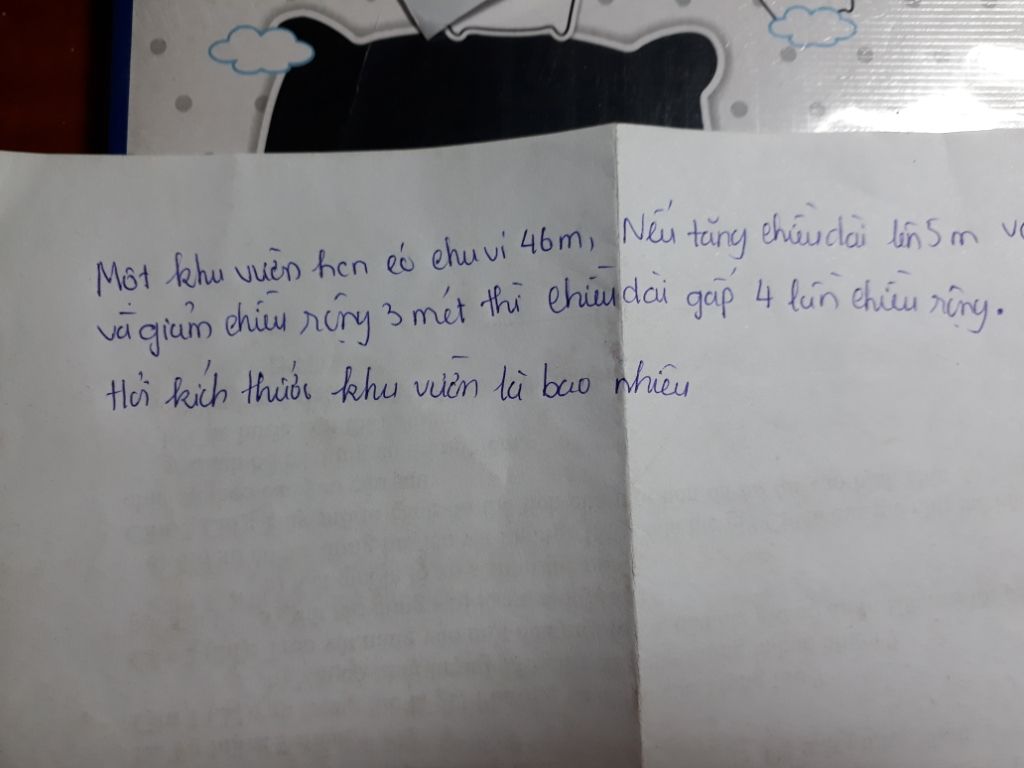 Một khu vườn hcn có chu vi 46m, Nếu tăng chiều dài lên 5m và
và giảm chiều rộng 3 mét thì chiều dài gấp 4 lần chiều rộng.
Hỏi kích thước khu vườn là bao nhiêu